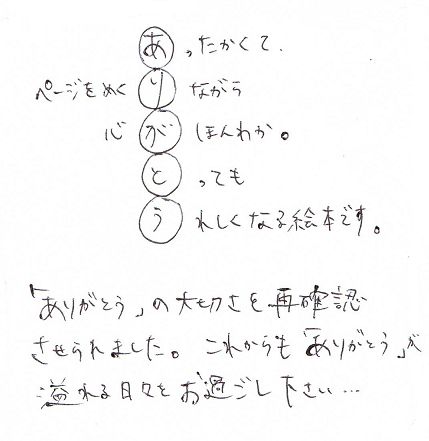 あったかくて、
ページをめくりながら
心がほんわか。
とっても
うれしくなる絵本です。
「ありがとう」の大切さを再確認
させられました。これからも「ありがとう」が
溢れる日々をお過ごし下さい…